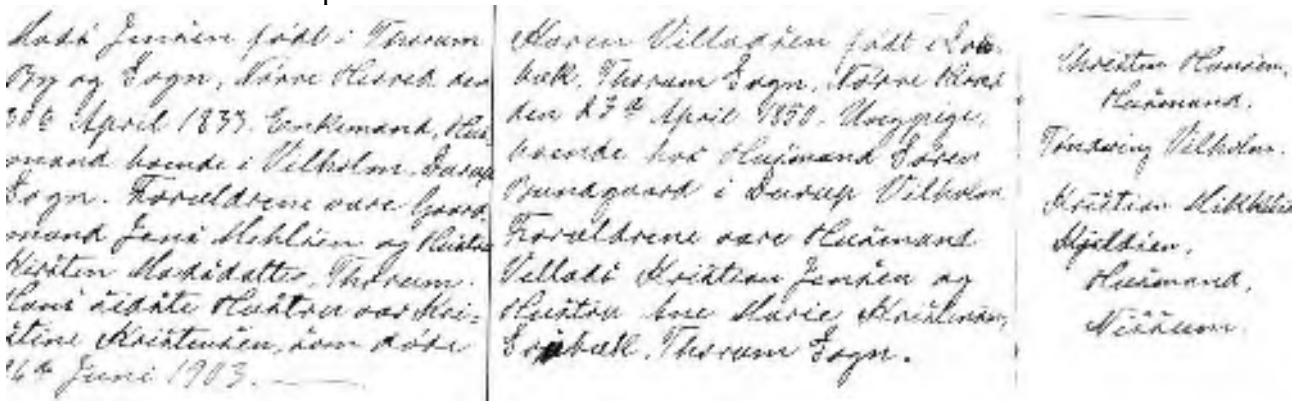 Mads Jensen født i Thorum
By og Sogn, Nørre Herred den
30te April 1833. Enkemand, Hus
mand boende i Vilholm, Durup
Sogn. Forældrene vare Gaard
mand Jens Mehlsen og Hustru
Kirsten Madsdatter, Thorum.
Hans sidste Hustru var Kri-
stine Kristensen, som døde
16de Juni 1903.
Karen Villadsen født i
bæk, Thorum Sogn, Nørre Herred
den 27de April 1850. Ungpige,
boende hos Husmand Søren
Bundgaard i Durup Vilholm
Forældrene vare Husmand
Villads Kristian Jensen og
Hustru Ane Marie Kristensen,
Thorum Sogn.
Christen Hansen,
Husmand,
Vilholm.
Kristian Mikkelsen
Kjeldsen,
Husmand,